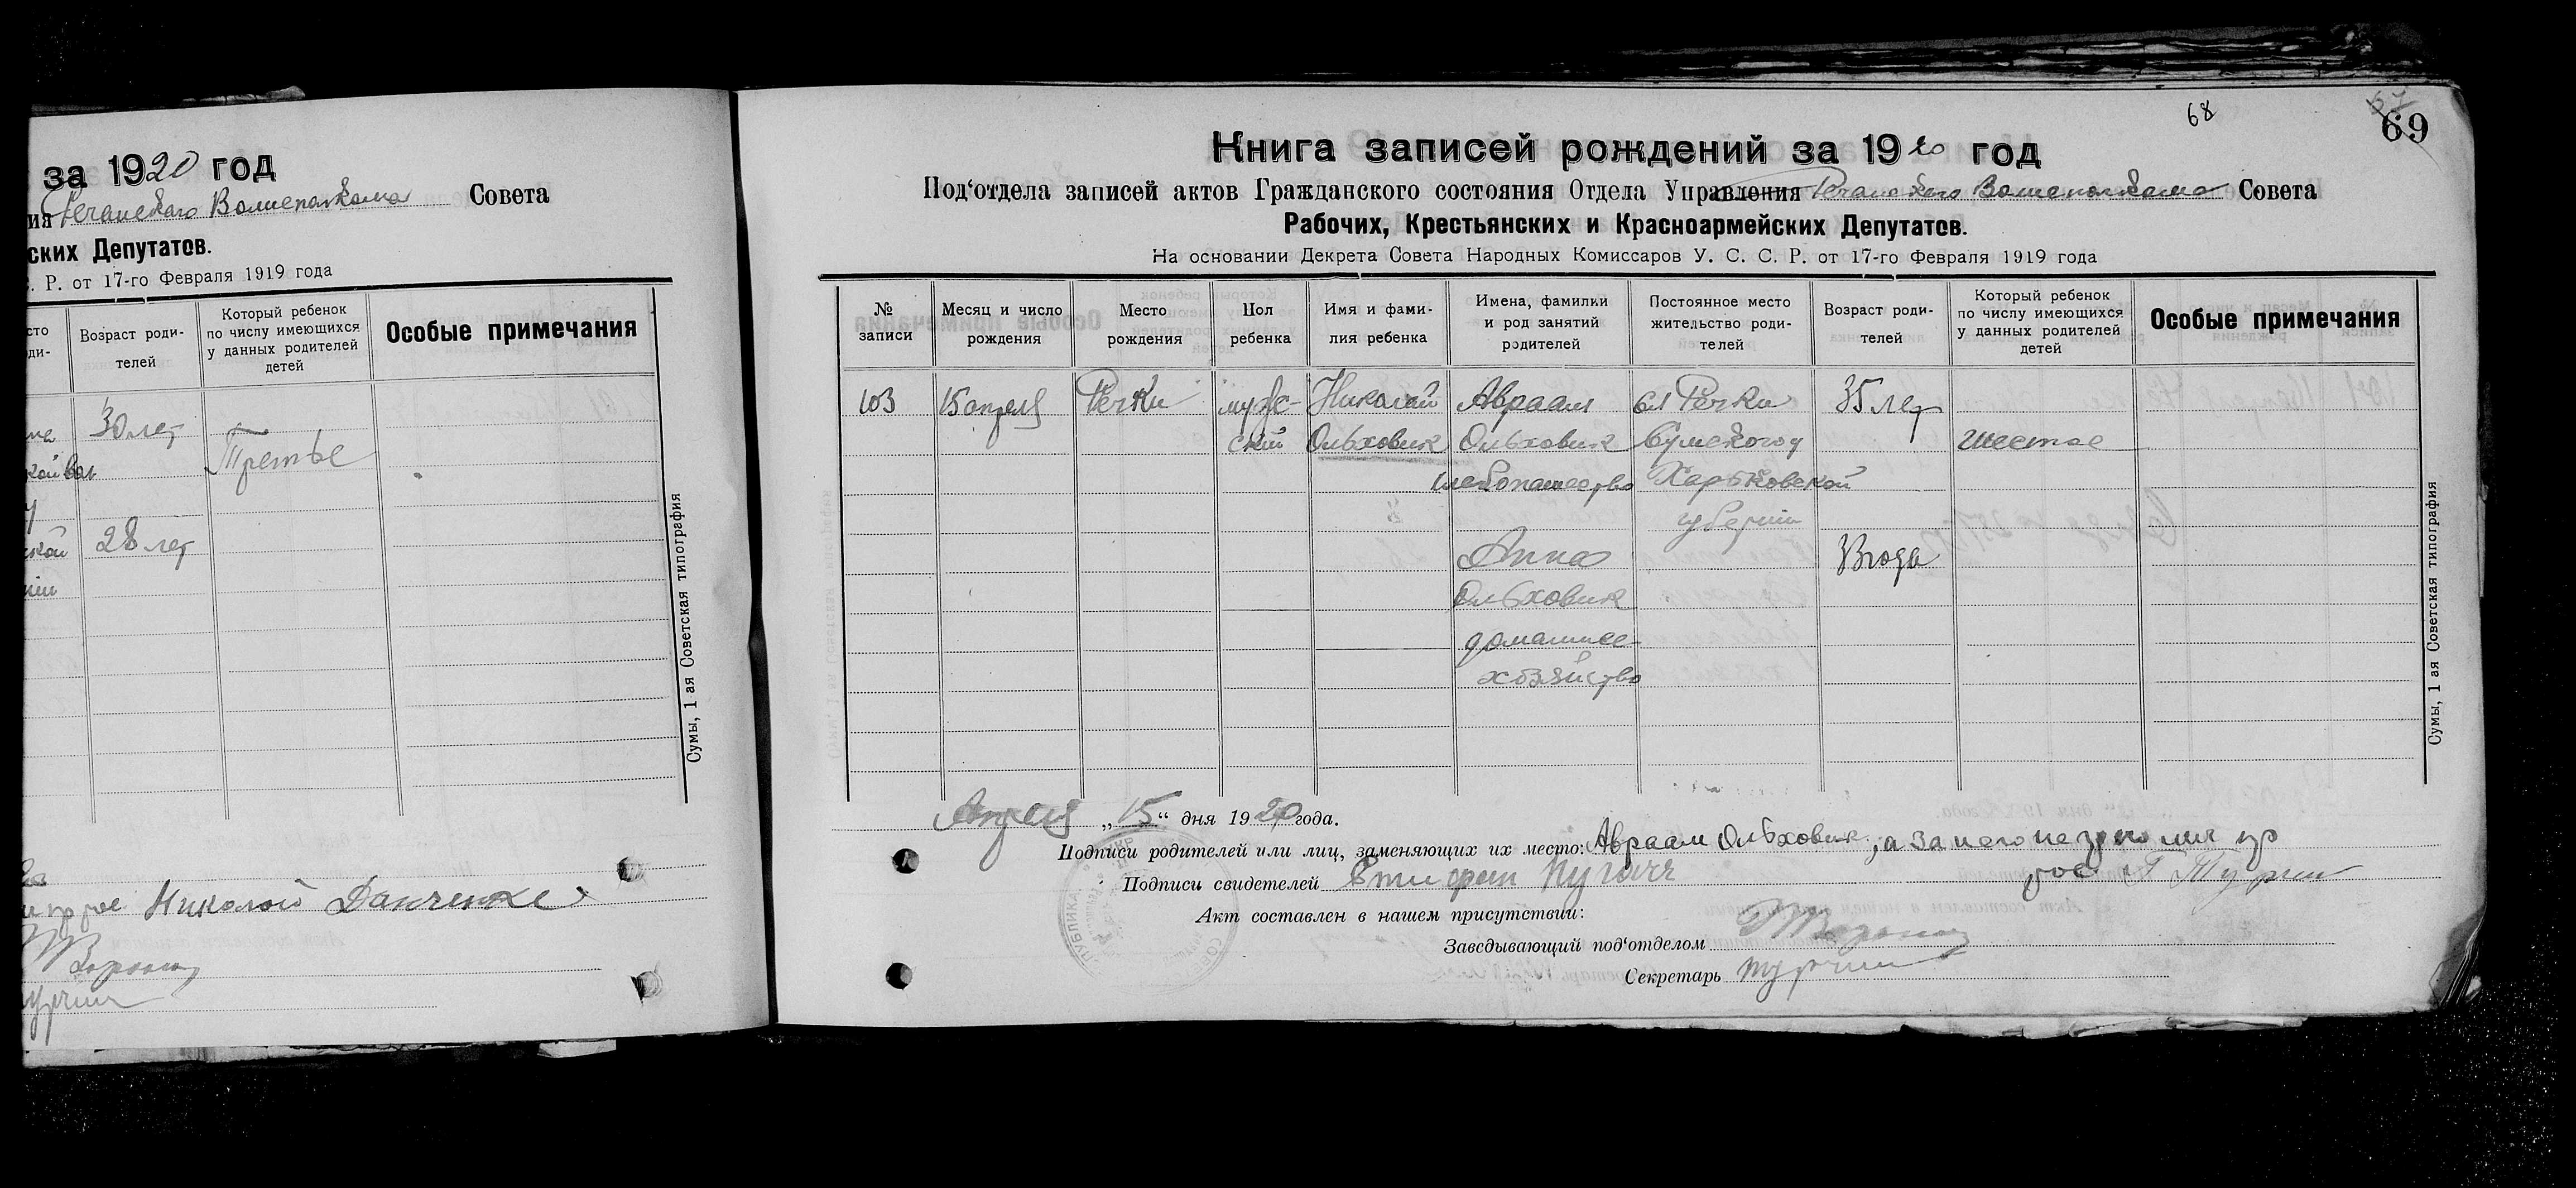 за 1920 год
Речанского Волисполкома Совета
ских Депутатов.
. Р. от 17-го Февраля 1919 года
Возраст роди-
телей
Который ребенок
по числу имеющихся
у данных родителей
детей
Особые примечания
30 лет
Третье
28 лет
Николай Данченко
Сумы, 1 ая Советская типография
68
69
Книга записей рождений за 1920 год
Под‘отдела записей актов Гражданского состояния Отдела Управления Речанского Волисполкома Совета
Рабочих, Крестьянских и Красноармейских Депутатов.
На основании Декрета Совета Народных Комиссаров У. С. С. Р. от 17-го Февраля 1919 года
№
записи
Месяц и число
рождения
Место
рождения
Пол
ребенка
Имя и фами-
лия ребенка
Имена, фамилии
и род занятий
родителей
Постоянное место
жительство роди-
телей
Возраст роди-
телей
Который ребенок
по числу имеющихся
у данных родителей
детей
Особые примечания
103
15 апреля
Речки
муж-
ской
Николай
Ольховик
Авраам
Ольховик
хлебопашество
Анна
Ольховик
домашнее
хозяйство
сл Речки
Сумского у
Харьковской
губернии
35 лет
33 года
шестое
Апреля „15“ дня 1920 года.
Подписи родителей или лиц, заменяющих их место: Авраам Ольховик, а за него неграмотн
Подписи свидетелей
Акт составлен в нашем присутствии:
Заведывающий под‘отделом
Секретарь
Сумы, 1 ая Советская типография